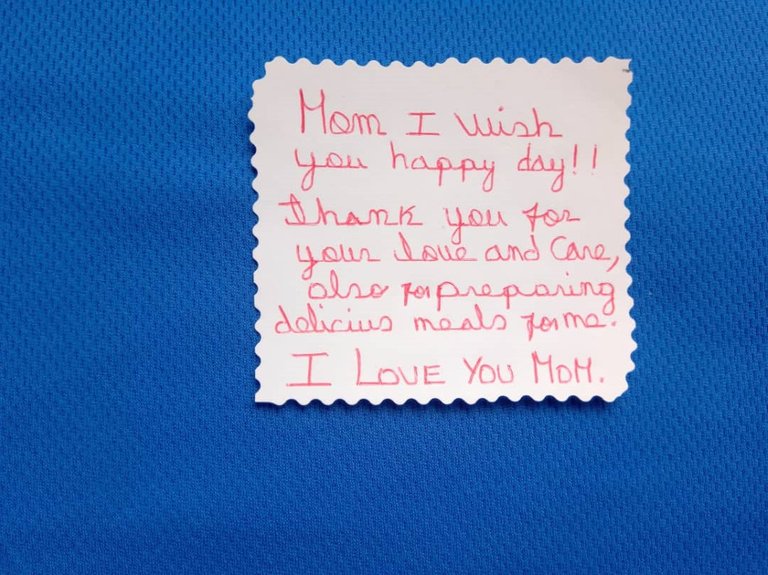 Mom I wish
you happy day!!
Thank you for
your love and Care,
also for preparing
delicius meals for me.
I LOVE YOU MOM.